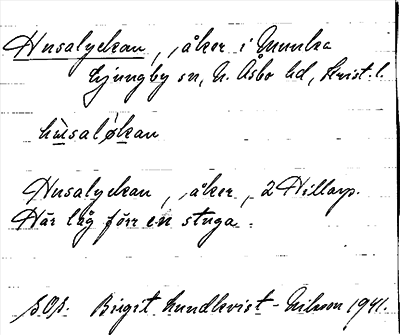 Husalyckan, åker i Munka
Ljungby sn, N. Åsbo hd, Krist. l.
hùsaløkan
Husalyckan, åker, 2 Hillarp.
Här låg förr en stuga.
Birgit Lundkvist-Nilsson 1941.